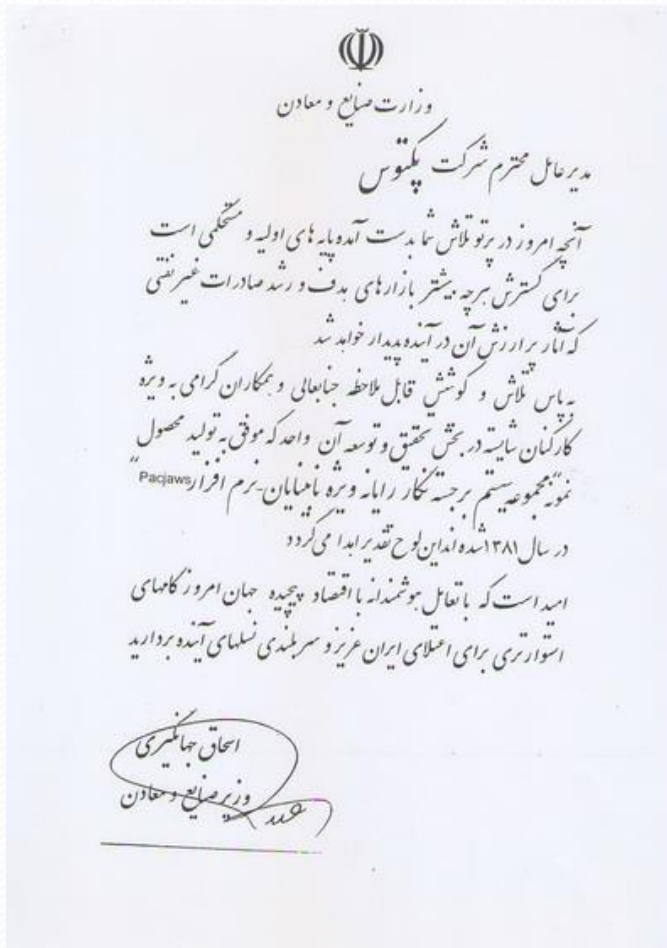 وزارت صنایع و معادن
مدیر عامل محترم شرکت پکتوس
آنچه امروز در پرتو تلاش شما بدست آمده پایه های اولیه و مستحکمی است
برای گسترش هرچه بیشتر بازارهای هدف و رشد صادرات غیرنفتی
که آثار پرارزش آن در آینده پدیدار خواهد شد
به پاس تلاش و کوشش قابل ملاحظه جنابعالی و همکاران گرامی به ویژه
کارکنان شایسته در بخش تحقیق و توسعه آن واحد که موفق به تولید محصول
نمونه "مجموعه سیستم برجسته نگار رایانه ویژه نابینایان-نرم افزار Pacjaws"
در سال ۱۳۸۱ شده اند این لوح تقدیر اهدا می گردد
امید است که با تعامل هوشمندانه با اقتصاد پیچیده جهان امروز گامهای
استوارتری برای اعتلای ایران عزیز و سربلندی نسلهای آینده بردارید
اسحاق جهانگیری
وزیر صنایع و معادن